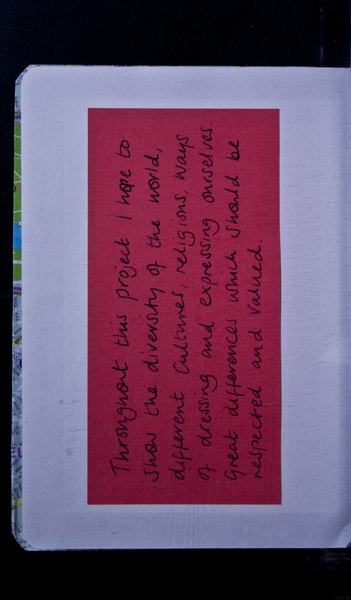 Throughout this project I hope to
show the diversity of the world,
different cultures, religions, ways
of dressing and expressing ourselves.
Great differences which should be
respected and valued.